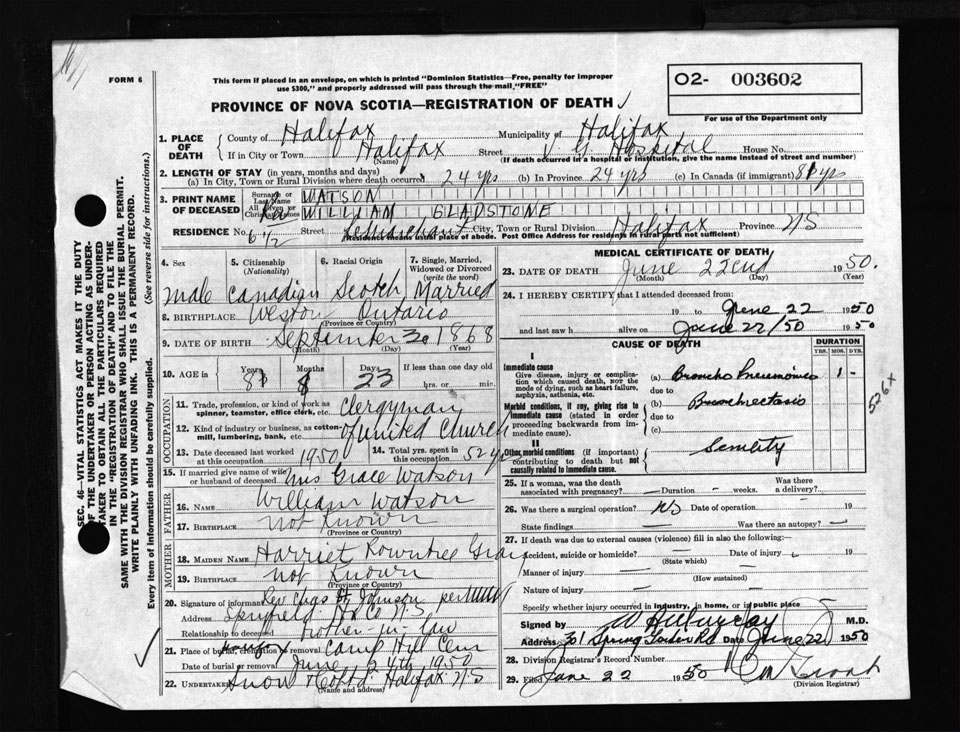 FORM 6
This form if placed in an envelope, on which is printed "Dominion Statistics—Free, penalty for improper
use $300," and properly addressed will pass through the mail, "FREE"
O2- 003602
PROVINCE OF NOVA SCOTIA—REGISTRATION OF DEATH
For use of the Department only
1. PLACE OF DEATH
County of Halifax Municipality of Halifax
If in City or Town Halifax Street V G. Hospital House No.
(Name) (If death occurred in a hospital or institution, give the name instead of street and number)
2. LENGTH OF STAY (in years, months and days)
(a) In City, Town or Rural Division where death occurred 24 yrs (b) In Province 24 yrs (c) In Canada (if immigrant) 81 yrs
3. PRINT NAME OF DECEASED
Surname or Last Name WATSON
All Given or Christian Names WILLIAM GLADSTONE
RESIDENCE No. 6 1/2 Street LeMarchant City, Town or Rural Division Halifax Province NS
(Residence means usual place of abode. Post Office Address for residents in rural parts not sufficient)
4. Sex
5. Citizenship (Nationality)
6. Racial Origin
7. Single, Married, Widowed or Divorced (write the word)
male Canadian Scotch Married
8. BIRTHPLACE Weston Ontario
(Province or Country)
9. DATE OF BIRTH September 30 1868
(Month) (Day) (Year)
10. AGE in Years 81 Months 8 Days 23 If less than one day old hrs. or min.
OCCUPATION
11. Trade, profession, or kind of work as spinner, teamster, office clerk, etc. Clergyman
12. Kind of industry or business, as cotton-mill, lumbering, bank, etc. of United Church
13. Date deceased last worked at this occupation 1950
14. Total yrs. spent in this occupation 52 yrs
15. If married give name of wife or husband of deceased Mrs Grace Watson
FATHER
16. NAME William Watson
17. BIRTHPLACE not Known
(Province or Country)
MOTHER
18. MAIDEN NAME Harriet Rowntree Gray
19. BIRTHPLACE not Known
(Province or Country)
20. Signature of informant Rev Chas Johnson per
Address Spryfield Hfx Co N.S
Relationship to deceased Brother-in-law
21. Place of burial, cremation or removal Camp Hill Cem
Date of burial or removal June 24th 1950
22. Undertaker Snow & Co Ltd. Halifax NS
(Name and address)
MEDICAL CERTIFICATE OF DEATH
23. DATE OF DEATH June 22nd 1950.
(Month) (Day) (Year)
24. I HEREBY CERTIFY that I attended deceased from:
19 to June 22 1950
and last saw h alive on June 22/50 1950
CAUSE OF DEATH
DURATION
YRS. MOS. DYS.
I
Immediate cause
Give disease, injury or complication which caused death, NOT the mode of dying, such as heart failure, asphyxia, asthenia, etc.
(a) Broncho Pneumonia 1 -
due to
Morbid conditions, if any, giving rise to immediate cause (stated in order proceeding backwards from immediate cause).
(b) Bronchiectasis
due to
(c)
526 x
II
Other morbid conditions (if important) contributing to death but not causally related to immediate cause.
Senility
25. If a woman, was the death associated with pregnancy? — Duration - weeks. Was there a delivery? -
26. Was there a surgical operation? No Date of operation 19
State findings — Was there an autopsy? -
27. If death was due to external causes (violence) fill in also the following:
Accident, suicide or homicide? — Date of injury 19
(State which)
Manner of injury —
(How sustained)
Nature of injury —
Specify whether injury occurred in industry, in home, or in public place
Signed by M.D.
Address 301 Spring Garden Rd Date June 22 1950
28. Division Registrar's Record Number
29. Filed June 22 1950
(Division Registrar)
SEC. 46—VITAL STATISTICS ACT MAKES IT THE DUTY
OF THE UNDERTAKER OR PERSON ACTING AS UNDER-
TAKER TO OBTAIN ALL THE PARTICULARS REQUIRED
IN THE "REGISTRATION OF DEATH" AND TO FILE THE
SAME WITH THE DIVISION REGISTRAR WHO SHALL ISSUE THE BURIAL PERMIT.
WRITE PLAINLY WITH UNFADING INK. THIS IS A PERMANENT RECORD.
Every item of information should be carefully supplied. (See reverse side for instructions.)